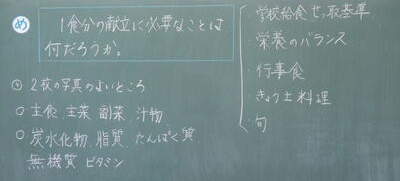 め
1食分の献立に必要なことは
何だろうか。
2枚の写真のよいところ
○主食 主菜 副菜 汁物
○炭水化物 脂質 たんぱく質
無機質 ビタミン
学校給食せっ取基準
・栄養のバランス
・行事食
・きょう土料理
・旬